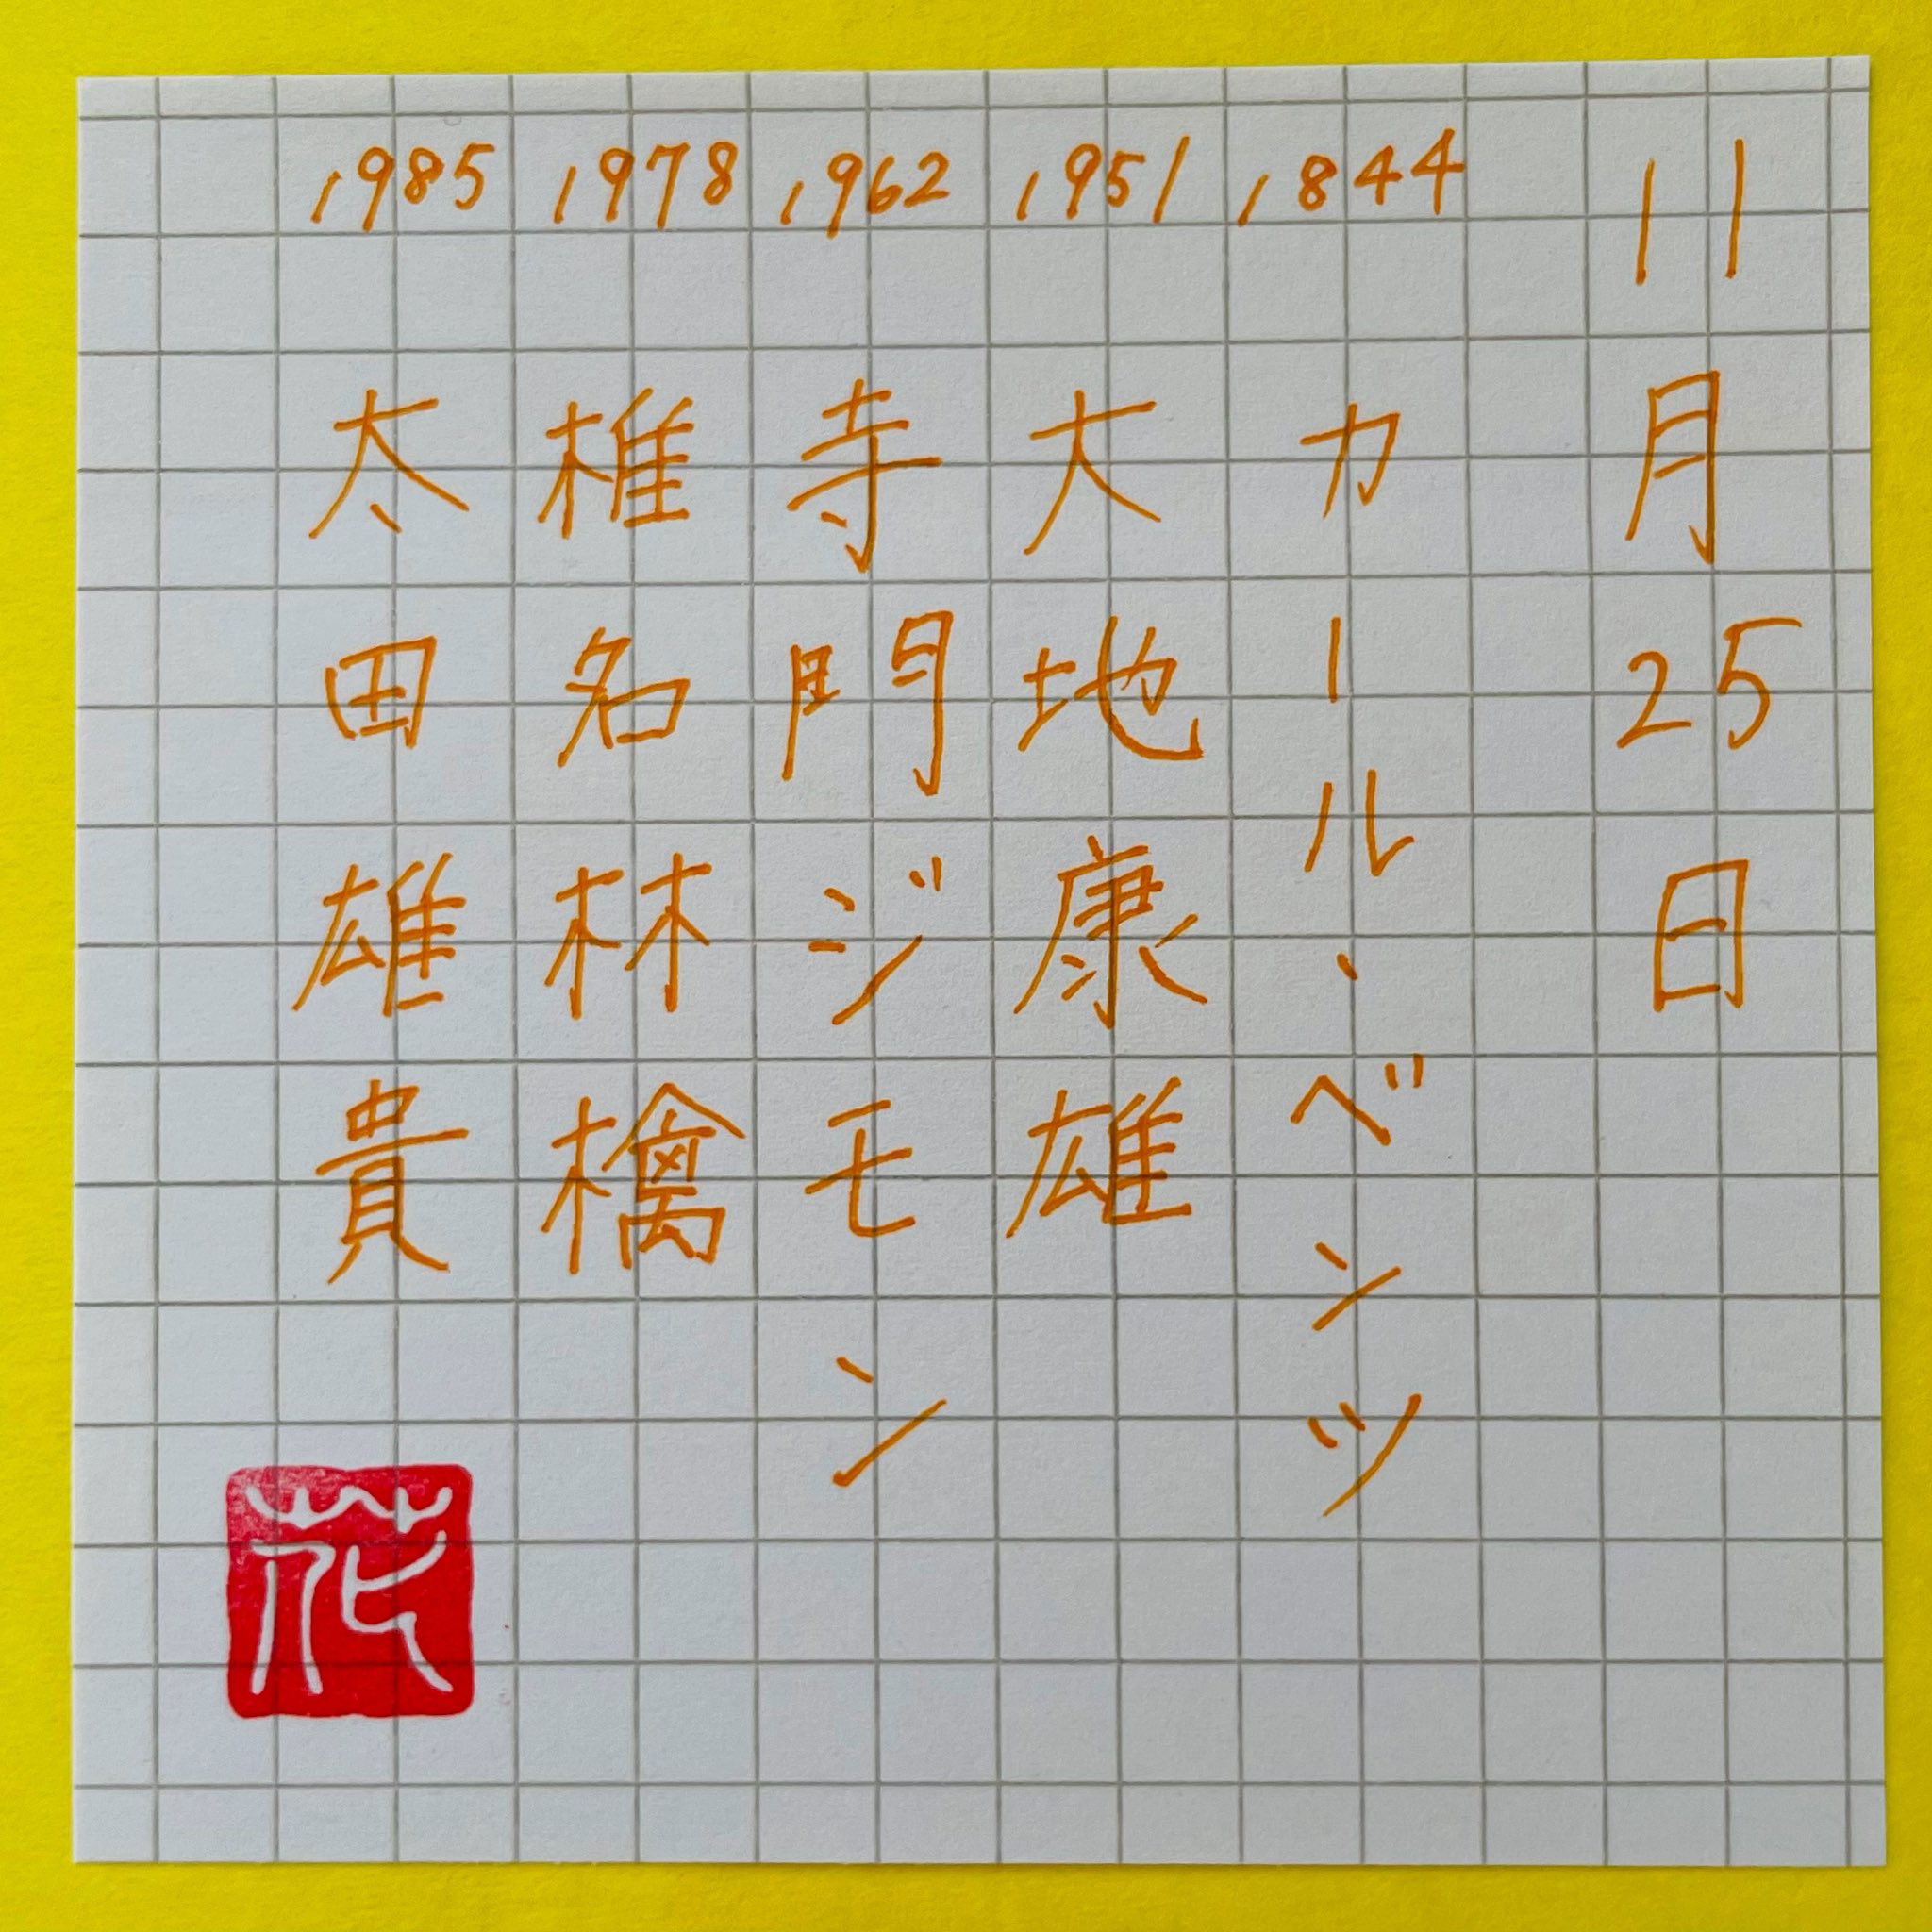 11月25日
1844 カール・ベンツ
1951 大地康雄
1962 寺門ジモン
1978 椎名林檎
1985 太田雄貴
花